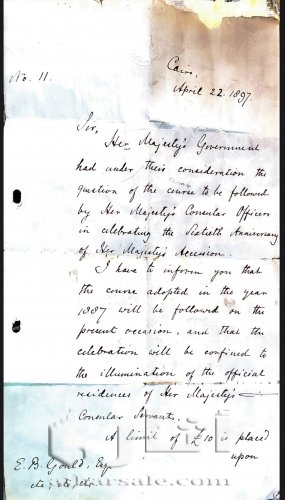 Cairo,
No. 11.
April 22. 1897.
Sir,
Her Majesty's Government
had under their consideration the
question of the course to be followed
by Her Majesty's Consular Officers
in celebrating the Sixtieth Anniversary
of Her Majesty's Accession.
I have to inform you that
the course adopted in the year
1887 will be followed on the
present occasion, and that the
celebration will be confined to
the illumination of the official
residences of Her Majesty's
Consular Servants.
A limit of £10 is placed
upon
E. B. Gould, Esq
etc, etc, etc.